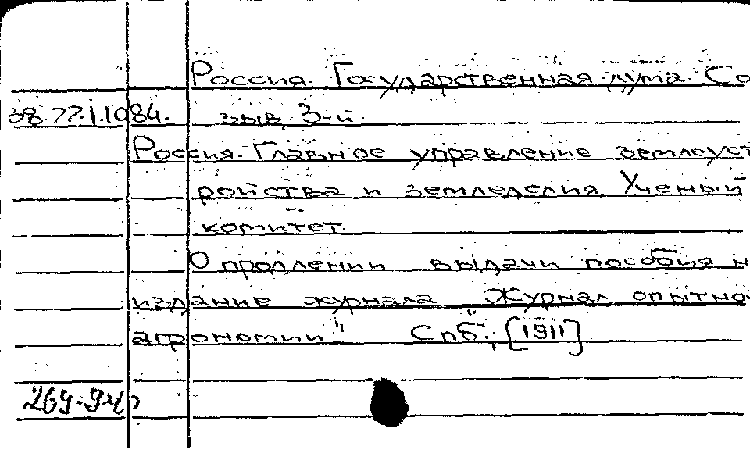 Россия. Государственная дума. Со
38.77.1.1084. зыв 3-й.
Россия. Главное управление землеуст
ройства и земледелия. Ученый
комитет.
О продлении выдачи пособия н
издание журнала "Журнал опытно
агрономии". Спб., [1911]